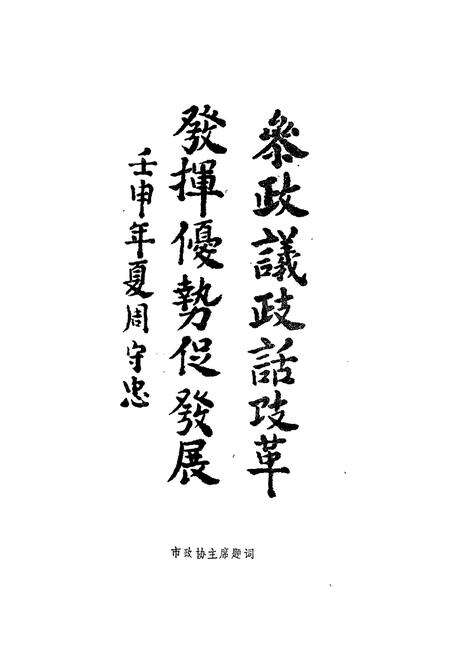 參政議政話改革
發揮優勢促發展
壬申年夏周守忠
市政协主席题词